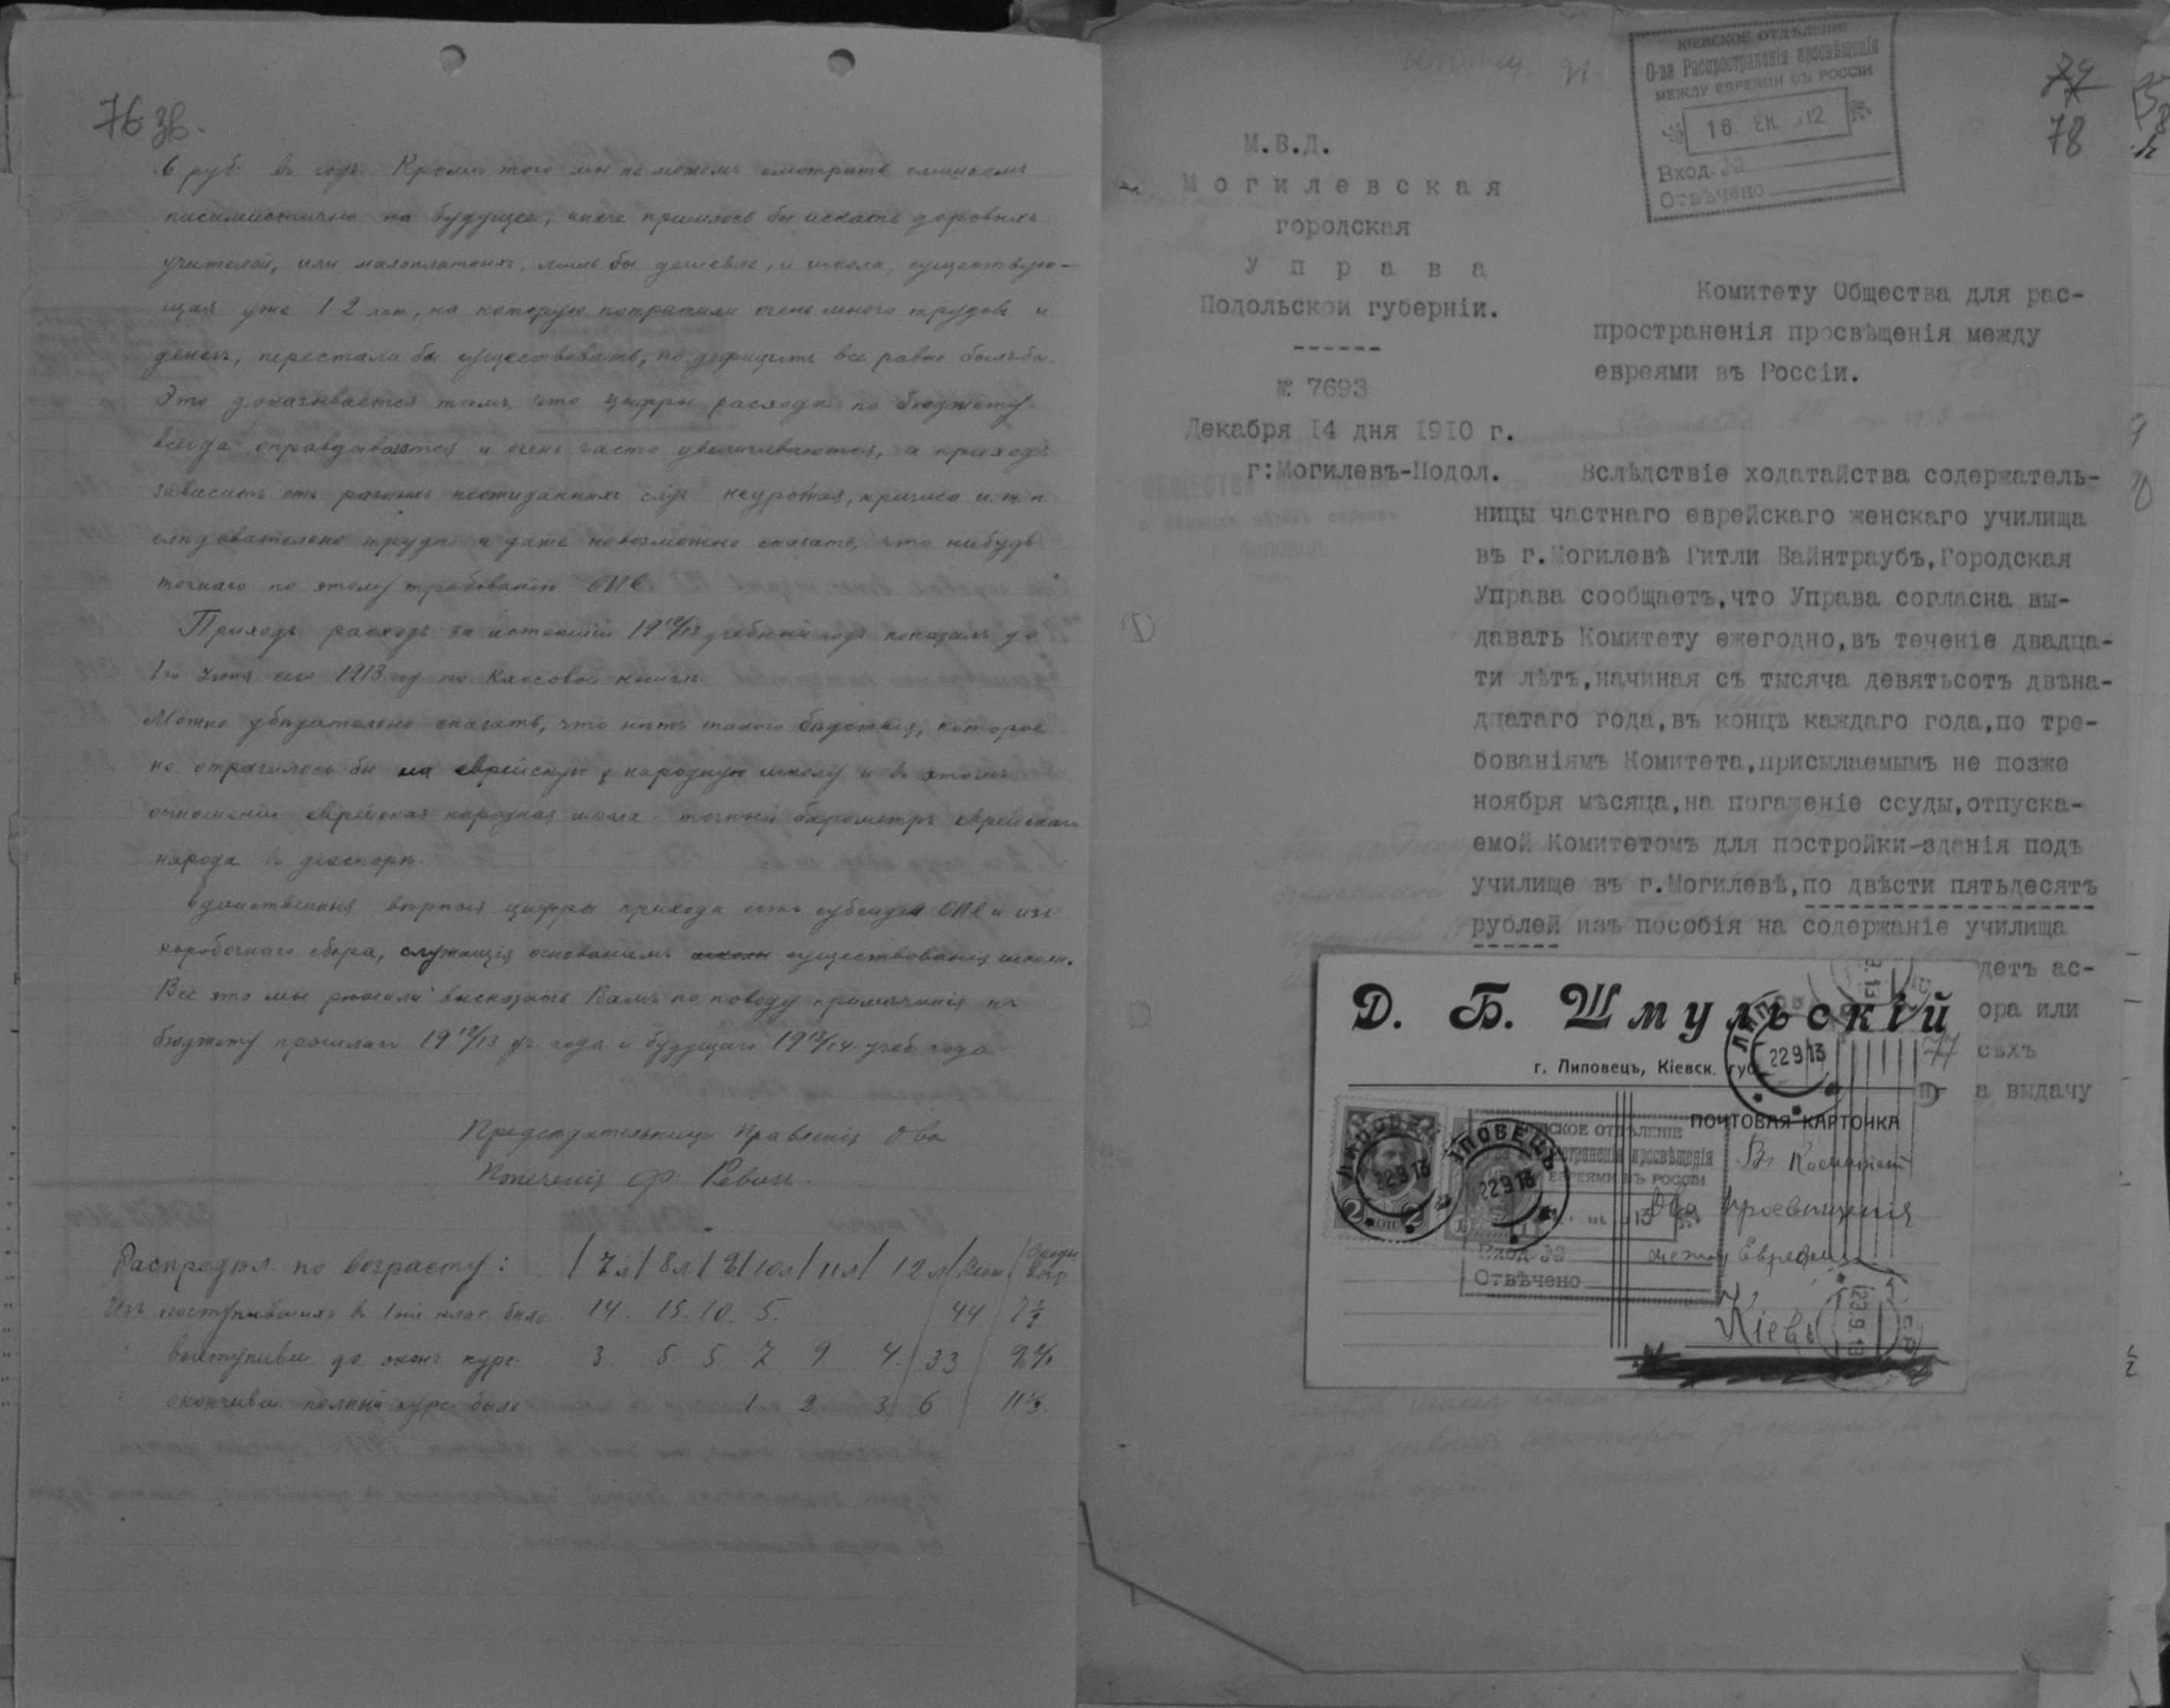 76 зв.
6 руб. въ годъ. Кромѣ того мы не можемъ смотрѣть слишкомъ
писимистично на будущее, иначе пришлось бы искать даровыхъ
учителей, или малоплатныхъ, лишь бы дешевле, и школа, существую-
щая уже 12 лѣтъ, на которую потратили очень много трудовъ и
денегъ, перестала бы существовать, но дефицитъ все равно былъ бы.
Это доказывается тѣмъ, что цифры расхода по бюджету
всегда оправдываются и очень часто увеличиваются, а приходъ
зависитъ отъ разныхъ неожиданныхъ случ неурожая, кризиса и.т.п
слѣдовательно трудно и даже невозможно сказать, что нибудь
точнаго по этому требованію ОПЕ
Приходъ расходъ за истекшій 1912/13 учебный годъ показанъ до
1го Іюня сего 1913 год по Кассовой книгѣ.
Можно убѣдительно сказать, что нѣтъ такого бѣдствія, которое
не отразилось бы на еврейскую народную школу и въ этомъ
отношеніи еврейская народная школа - точный барометръ еврейскаго
народа въ діаспорѣ.
Единственныя вѣрныя цифры прихода есть субсидія ОПЕ и изъ
коробочнаго сбора, служащія основаніемъ существованія школы.
Все это мы рѣшили высказать Вамъ по поводу примѣчанія къ
бюджету прошлаго 1912/13 уч. года и будущаго 1913/14 учеб года
Предсѣдательница Правленія О ва
Попеченія Ф. Ревич.
Распредѣл. по возрасту: | 7л | 8л. | 9 | 10л | 11л | 12 л | Всего | Средн. возр
Изъ поступившихъ въ 1ый клас. было 14. 15. 10. 5. 44
выступивш. до оконч курс. 3. 5. 5 7 9 4. 33
окончивш. полный курсъ было 1 2 3 6 11 1/3.
КІЕВСКОЕ ОТДѢЛЕНІЕ
О-ва Распространенія просвѣщенія
МЕЖДУ ЕВРЕЯМИ ВЪ РОССІИ
Вход. №
Отвѣчено
78
М.В.Д.
Могилевская
городская
Управа
Подольской губерніи.
------
№ 7693
Декабря 14 дня 1910 г.
г:Могилевъ-Подол.
Комитету Общества для рас-
пространенія просвѣщенія между
евреями въ Россіи.
Вслѣдствіе ходатайства содержатель-
ницы частнаго еврейскаго женскаго училища
въ г.Могилевѣ Гитли Вайнтраубъ,Городская
Управа сообщаетъ,что Управа согласна вы-
давать Комитету ежегодно,въ теченіе двадца-
ти лѣтъ,начиная съ тысяча девятьсотъ двѣна-
дцатаго года,въ концѣ каждаго года,по тре-
бованіямъ Комитета,присылаемымъ не позже
ноября мѣсяца,на погашеніе ссуды,отпуска-
емой Комитетомъ для постройки-зданія подъ
училище въ г.Могилевѣ,по двѣсти пятьдесятъ
рублей изъ пособія на содержаніе училища
детъ ас-
ора или
сѣхъ
а выдачу
Д. Б. Шмульскій
г. Липовецъ, Кіевск. губ.
ЛИПОВЕЦЪ
22 9 13
77
ПОЧТОВАЯ КАРТОЧКА
ЛИПОВЕЦЪ
22 9 13
ЛИПОВЕЦЪ
22 9 13
2 КОП. 2
СКОЕ ОТДѢЛЕНІЕ
страненія просвѣщенія
ЕВРЕЯМИ ВЪ РОССІИ
Вход. №
Отвѣчено
Въ Комитетъ
О-ва просвѣщенія
между Евреями
Кіевъ
23.9.13